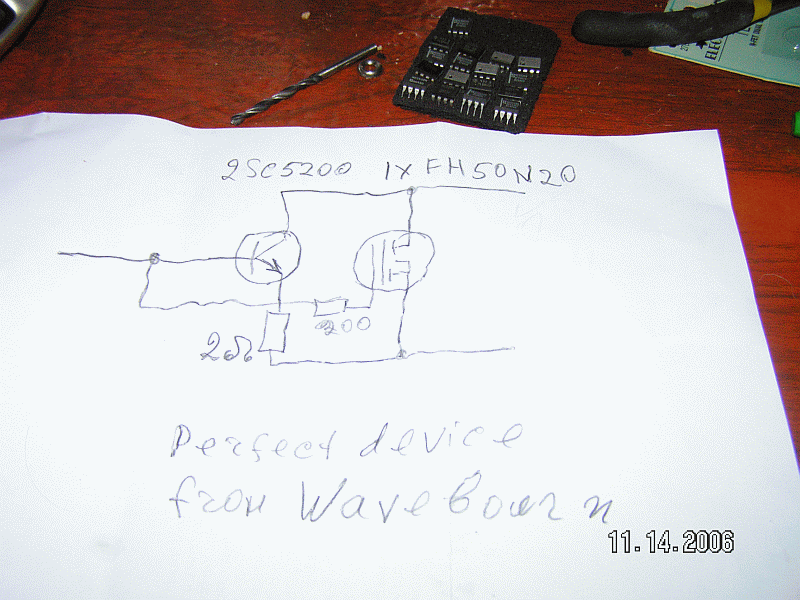 2SC5200 IXFH50N20
200
2Ω
Perfect device
from Wavebourn
11.14.2006